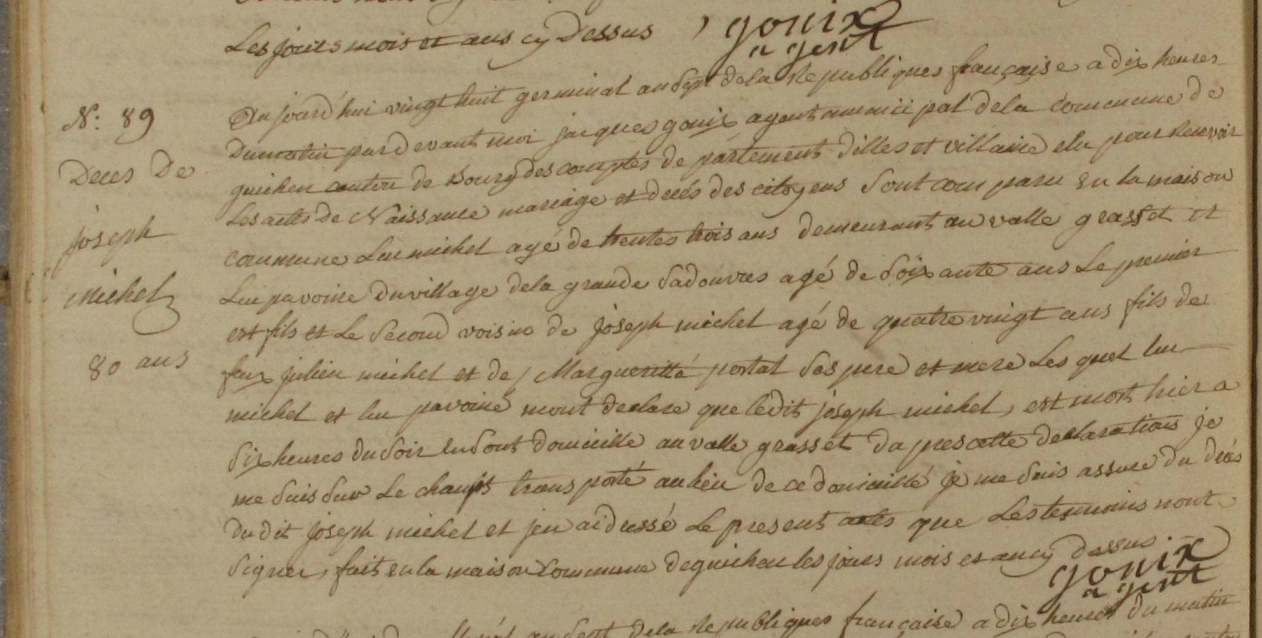 Les jours mois et ans cy Dessus gouix
agent
N: 89
Deces De
joseph
Michel
80 ans
Au jourd'hui vingt huit germinal an Sept dela Republiques française a dix heures
Dumatin par devant moi jacques gouix agent municipal dela commune de
guichen canton de Bourg des comptes departement dilles et villaine elu pour Recevoir
Les actes de Naissance mariage et decés des citoyens Sont comparu en la maison
commune Luc michel agé de trentes trois ans demeurant au valle grasset et
Luc pavoine Du village dela grande agé de Soixante ans Le premier
est fils et Le Second voisin de joseph michel agé de quatre vingt ans fils de
feux julien michel et de Margueritte portal Ses pere et mere Les quel luc
michel et luc pavoine mont declare que ledit joseph michel, est mort hier a
Six heures du Soir en Sont domicille au valle grasset Da pres cette declarations je
me Suis Sur Le champs transporté au lieu de ce domicille je me Suis assure Du decés
Du dit joseph michel et jen ai dressé Le present actes que Les temoins nont
Signer, fait en la maison Commune de guichen les jours mois et an cy dessus
gouix
agent
an Sept dela Republiques française a dix heures du matin